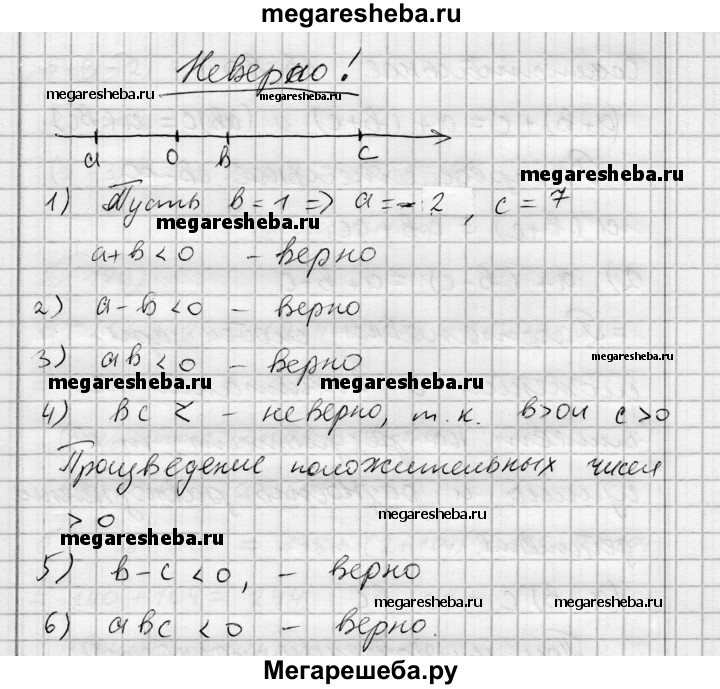 megaresheba.ru
Неверно!
megaresheba.ru megaresheba.ru
a 0 b c
megaresheba.ru
1) Пусть b = 1 => a = -2, c = 7
megaresheba.ru
a+b < 0 - верно
2) a - b < 0 - верно
megaresheba.ru
3) ab < 0 - верно
megaresheba.ru megaresheba.ru
4) bc < - неверно, т.к. b>0 и c>0
Произведение положительных чисел
> 0
megaresheba.ru
megaresheba.ru
5) b-c < 0, - верно
megaresheba.ru megaresheba.ru
6) abc < 0 - верно.
Мегарешеба.ру